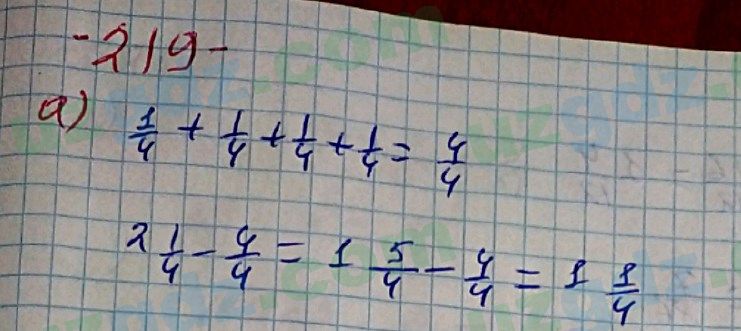 -219-
a) 1/4 + 1/4 + 1/4 + 1/4 = 4/4
2 1/4 - 4/4 = 1 5/4 - 4/4 = 1 1/4